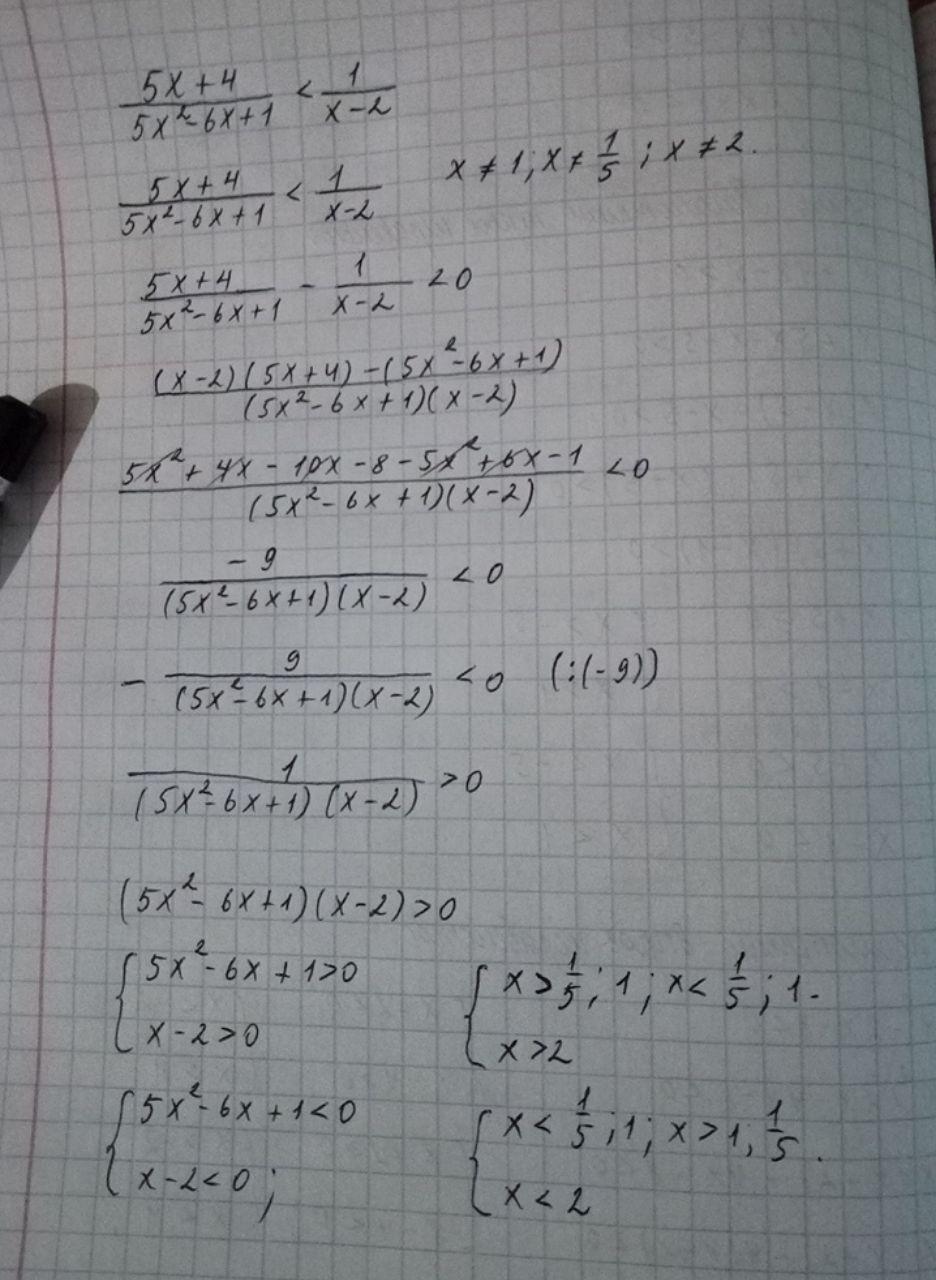 (5x+4)/(5x²-6x+1) < 1/(x-2)
(5x+4)/(5x²-6x+1) < 1/(x-2) x≠1; x≠1/5; x≠2.
(5x+4)/(5x²-6x+1) - 1/(x-2) < 0
((x-2)(5x+4)-(5x²-6x+1))/((5x²-6x+1)(x-2))
(5x²+4x-10x-8-5x²+6x-1)/((5x²-6x+1)(x-2)) < 0
-9/((5x²-6x+1)(x-2)) < 0
- 9/((5x²-6x+1)(x-2)) < 0 (:(-9))
1/((5x²-6x+1)(x-2)) > 0
(5x²-6x+1)(x-2)>0
{5x²-6x+1>0 {x>1/5;1; x<1/5;1.
x-2>0 x>2
{5x²-6x+1<0 {x<1/5;1; x>1,1/5.
x-2<0; x<2